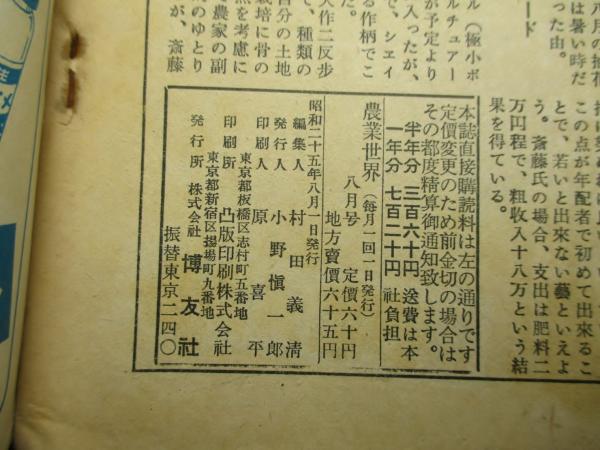 果を得ている。
万円程で、粗収入十八万という結
う。斎藤氏の場合、支出は肥料二
とで、若いと出来ない藝といえよ
この点が年配者で初めて出来るこ
本誌直接購読料は左の通りです
定價変更のため前金切の場合は
その都度精算御通知致します。
半年分 三百六十円 送費は本
一年分 七百二十円 社負担
農業世界（毎月一回一日発行）
八月号 定價六十円
地方賣價六十五円
昭和二十五年八月一日発行
編集人 村田義清
発行人 小野愼一郎
印刷人 原喜平
東京都板橋区志村町五番地
印刷所 凸版印刷株式会社
東京都新宿区揚場町九番地
発行所 株式会社 博友社
振替東京二四〇
ル（極小ボ
ルチュアー
が予定より
入ったが、
で、シェイ
る作柄でこ
た。
大作二反歩
て、種類の
自分の土地
栽培に骨の
点を考慮に
農家の副
のゆとり
が、斎藤
八月の抽花
は暑い時だ
った由。
ード